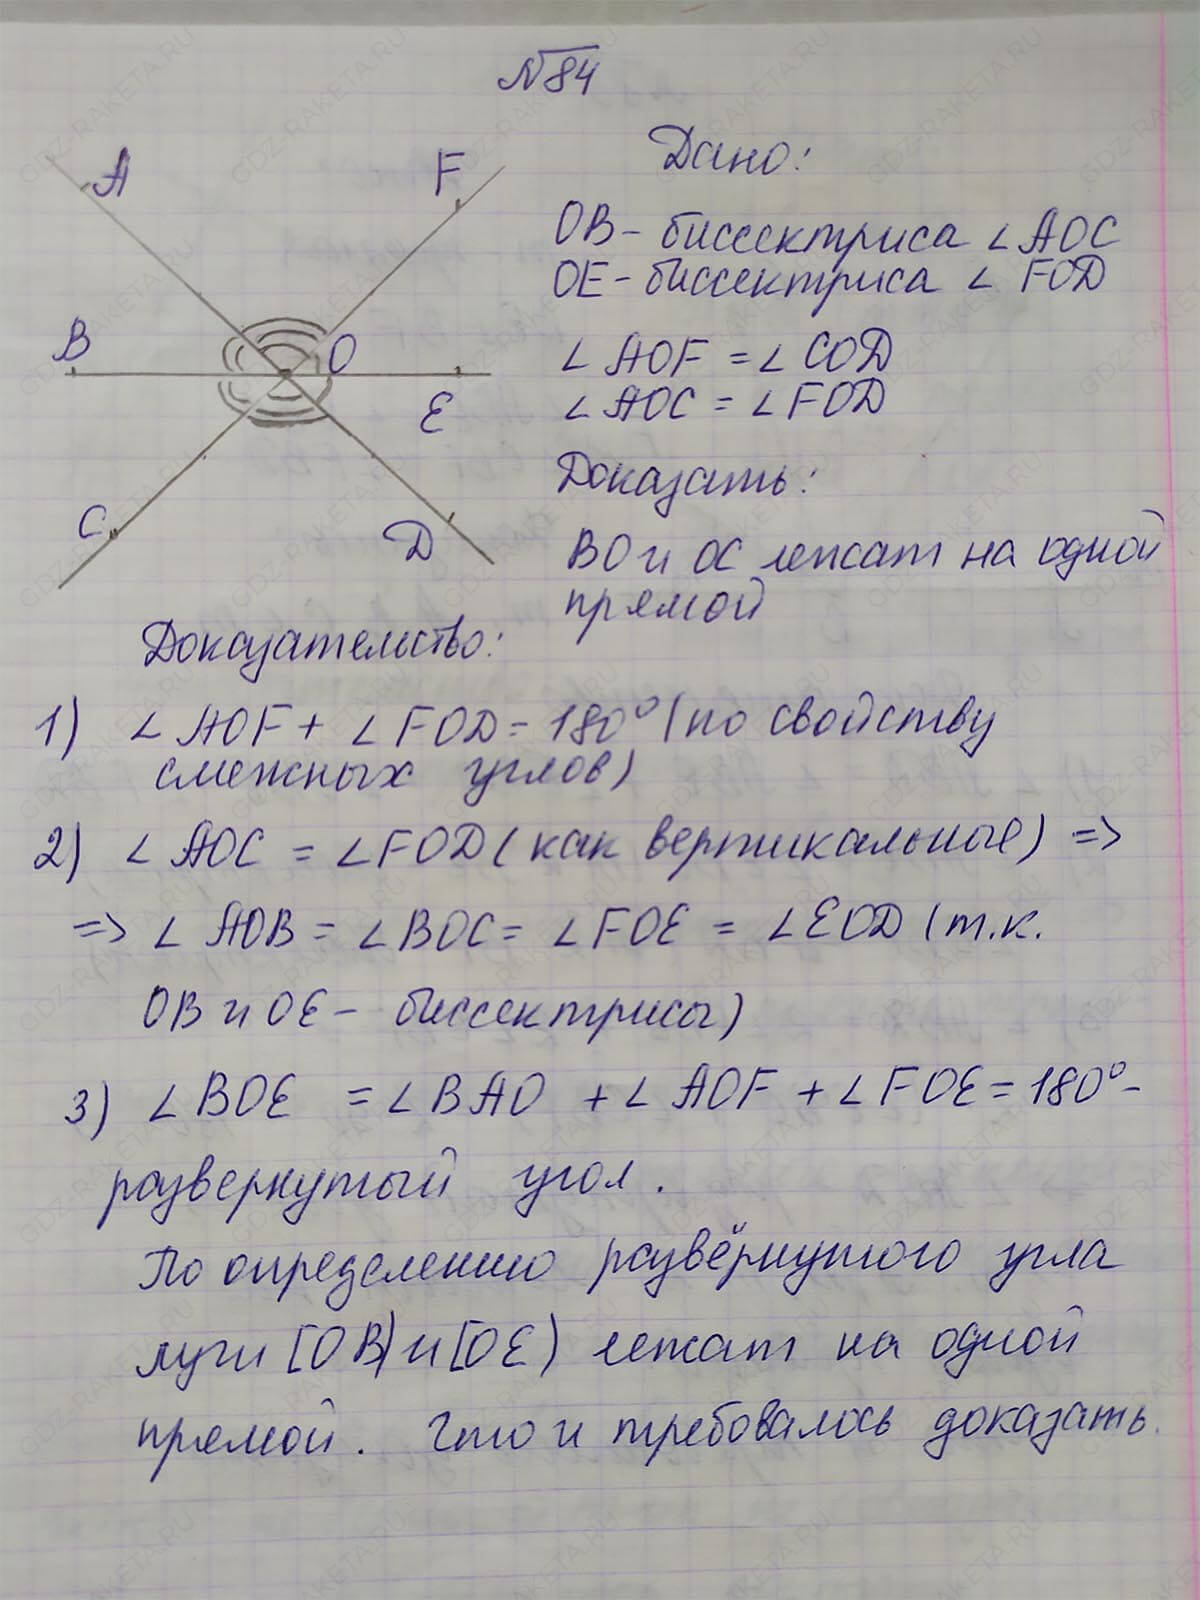 №84
A
F
B
O
E
C
D
Дано:
OB - биссектриса ∠AOC
OE - биссектриса ∠ FOD
∠ AOF = ∠ COD
∠ AOC = ∠ FOD
Доказать:
BO и OC лежат на одной
прямой
Доказательство:
1) ∠ AOF + ∠ FOD = 180° (по свойству
смежных углов)
2) ∠ AOC = ∠ FOD (как вертикальные) =>
=> ∠ AOB = ∠ BOC = ∠ FOE = ∠ EOD (т.к.
OB и OE - биссектрисы)
3) ∠ BOE = ∠ BAO + ∠ AOF + ∠ FOE = 180° -
развернутый угол.
По определению развёрнутого угла
лучи [OB) и [OE) лежат на одной
прямой. Что и требовалось доказать.
GDZ-RAKETA.RU